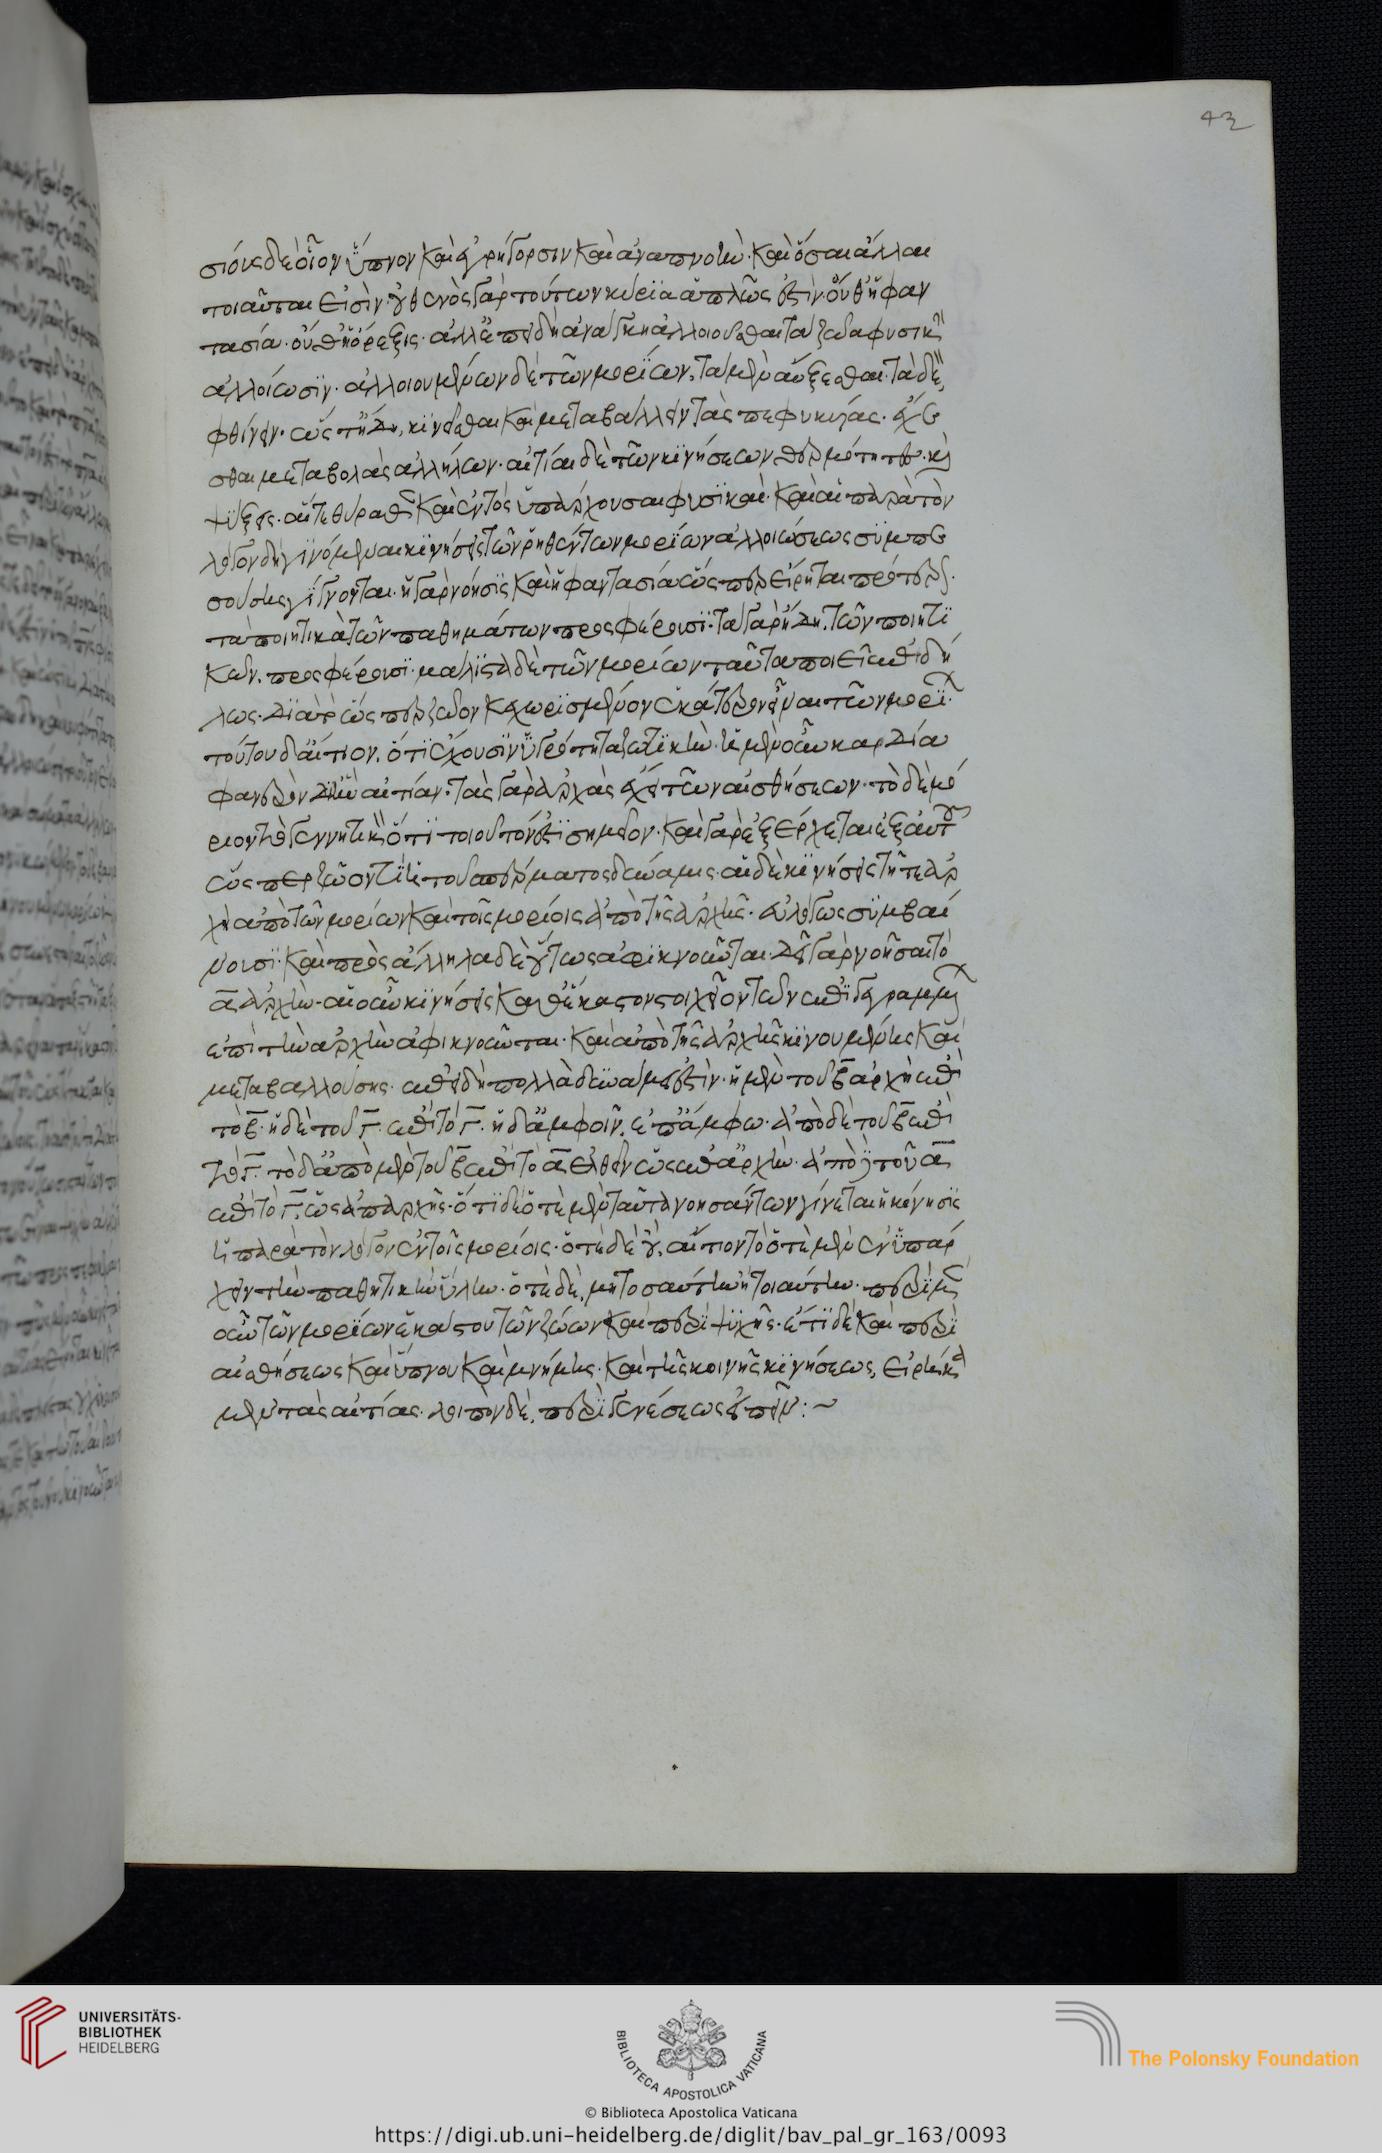 42
σίους δὲ οἷον ὕπνον καὶ ἐγρήγορσιν καὶ ἀναπνοὴν. καὶ ὅσαι ἄλλαι
τοιαῦται εἰσὶν. οὐθενὸς γὰρ τούτων κυρία ἁπλῶς ἐστὶν. οὔθ' ἡ φαν
τασία. οὔθ' ἡ ὄρεξις. ἀλλ' ἐπειδὴ ἀνάγκη ἀλλοιοῦσθαι τὰ ζῶα φυσικὴν
ἀλλοίωσιν. ἀλλοιουμένων δὲ τῶν μορίων, τὰ μὲν αὔξεσθαι. τὰ δὲ,
φθίνειν. ὥστ' ἤδη, κινεῖσθαι καὶ μεταβάλλειν τὰς πεφυκυίας. ἔχε
σθαι μεταβολὰς ἀλλήλων. αἰτίαι δὲ τῶν κινήσεων θερμότητές. καὶ
ψύξεις. αἵ τε θύραθεν καὶ ἐντὸς ὑπάρχουσαι φυσικαί. καὶ αἱ παρὰ τὸν
λόγον δὴ γινόμεναι κινήσεις τῶν ῥηθέντων μορίων ἀλλοιώσεως συμπε
σούσης γίγνονται. ἡ γὰρ νόησις καὶ ἡ φαντασία ὥσπερ εἴρηται πρότερον.
τὰ ποιητικὰ τῶν παθημάτων προσφέρουσι. τὰ γὰρ εἴδη, τῶν ποιητι
κῶν. προσφέρουσι. μάλιστα δὲ τῶν μορίων ταῦτα ποιεῖ ἐπιδή
λως. διὰ τὸ ὥσπερ ζῶον κεχωρισμένον ἑκάτερον εἶναι τῶν μορίων.
τούτου δ' αἴτιον. ὅτι ἔχουσιν ὑγρότητα ζωτικήν. ἡ μὲν οὖν καρδία
φανερὸν δι' ἣν αἰτίαν. τὰς γὰρ ἀρχὰς ἔχει τῶν αἰσθήσεων. τὸ δὲ μό
ριον τὸ γεννητικὸν ὅτι τοιοῦτόν ἐστι σημεῖον. καὶ γὰρ ἐξέρχεται ἐξ αὐτοῦ
ὥσπερ ζῶόν τι ἡ τοῦ σπέρματος δύναμις. αἱ δὲ κινήσεις τῇ τε ἀρ
χῇ ἀπὸ τῶν μορίων καὶ τοῖς μορίοις ἀπὸ τῆς ἀρχῆς. εὐλόγως συμβαί
νουσι. καὶ πρὸς ἄλληλα δὲ οὕτως ἀφικνοῦνται. δεῖ γὰρ νοῆσαι τὸ
α ἀρχήν. αἱ οὖν κινήσεις καθ' ἕκαστον στοιχεῖον τῶν ἐπιγεγραμμένων
ἐπὶ τὴν ἀρχὴν ἀφικνοῦνται. καὶ ἀπὸ τῆς ἀρχῆς κινουμένης καὶ
μεταβαλλούσης. ἐπειδὴ πολλὰ δυνάμει ἐστὶν. ἡ μὲν τοῦ β ἀρχὴ ἐπὶ
τὸ β. ἡ δὲ τοῦ Γ. ἐπὶ τὸ Γ. ἡ δ' ἀμφοῖν. ἐπ' ἄμφω. ἀπὸ δὲ τοῦ β ἐπὶ
τὸ Γ. τὸ δ' ἀπὸ μὲν τοῦ β ἐπὶ τὸ α ἐλθεῖν ὡς ἐπ' ἀρχὴν. ἀπὸ δὲ τοῦ α
ἐπὶ τὸ Γ. ὡς ἀπ' ἀρχῆς. ὅτι δὲ ὁτὲ μὲν ταῦτα νοησάντων γίνεται ἡ κίνησις
ἡ παρὰ τὸν λόγον ἐν τοῖς μορίοις. ὁτὲ δὲ οὔ. αἴτιον τὸ ὁτὲ μὲν ἐνυπάρ
χειν τὴν παθητικὴν ὕλην. ὁτὲ δὲ, μὴ τοσαύτην ἢ τοιαύτην. περὶ μὲν
οὖν τῶν μορίων ἑκάστου τῶν ζώων καὶ περὶ ψυχῆς. ἔτι δὲ καὶ περὶ
αἰσθήσεως καὶ ὕπνου καὶ μνήμης. καὶ τῆς κοινῆς κινήσεως, εἰρήκα
μεν τὰς αἰτίας. λοιπὸν δὲ, περὶ γενέσεως εἰπεῖν: ~
UNIVERSITÄTS-
BIBLIOTHEK
HEIDELBERG
BIBLIOTECA APOSTOLICA VATICANA
The Polonsky Foundation
© Biblioteca Apostolica Vaticana
https://digi.ub.uni-heidelberg.de/diglit/bav_pal_gr_163/0093